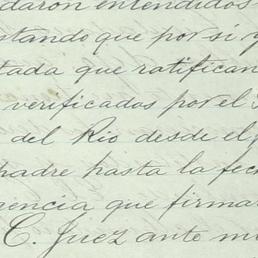 daron entendidos
stando que por si y
tada que ratifican
verificados por el
del Rio desde el
padre hasta la fec
rencia que firma
C. Juez ante m